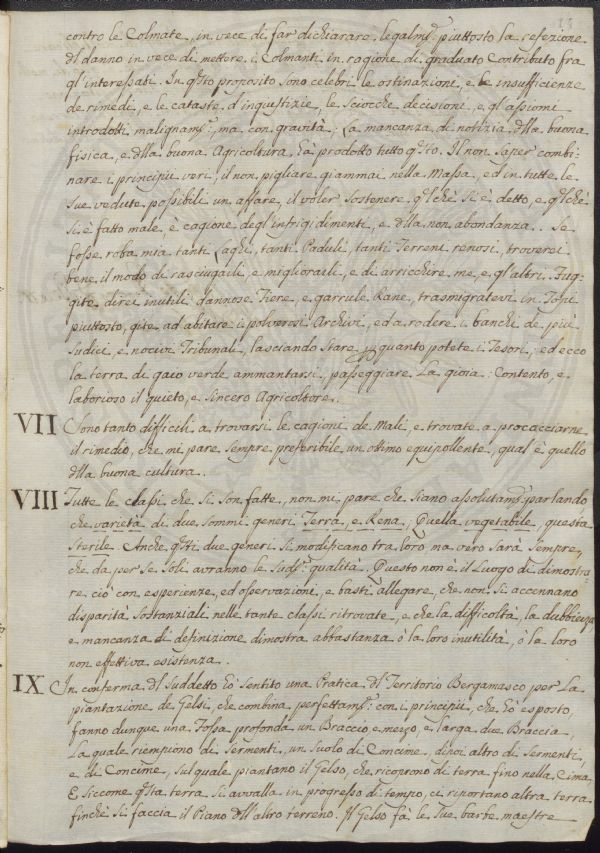 contro le Colmate, in vece di far dichiarare legalmẽ piuttosto la refezione
dl danno in vece di mettere i Colmanti in ragione di graduato Contributo fra
gl'interessati. In qsto proposito sono celebri le ostinazioni, e le insufficienze
de rimedi, e le cataste d'ingiustizie, le sciocche decisioni, e gl'assiomi
introdotti malignamẽ, ma con gravità; La mancanza di notizia dlla buona
fisica, e dlla buona Agricoltura hà prodotto tutto qsto. Il non saper combi-
nare i principii veri, il non pigliare giammai nella Massa, ed in tutte le
sue vedute possibili un affare, il voler sostenere qlchè si è detto, e qlchè
si è fatto male, è cagione degl'infrigidimenti, e dlla non abondanza. Se
fosse roba mia tanti Laghi, tanti Paduli, tanti Terreni renosi, troverei
bene il modo di rasciugarli, e migliorarli, e di arricchire me, e gl'altri. Fug-
gite direi inutili dannose Fiere, e garrule Rane, trasmigratevi in Topi
piuttosto, gite ad abitare i polverosi Archivi, ed a rodere i banchi de più
sudici, e nocivi Tribunali, lasciando stare quanto potete i Tesori, ed ecco
la terra di gaio verde ammantarsi, passeggiare la gioia. Contento, e
laborioso il quieto, e sincero Agricoltore.
VII Sono tanto difficili a trovarsi le cagioni de Mali, e trovate a procacciarne
il rimedio, che mi pare sempre preferibile un ottimo equipollente, qual è quello
dlla buona cultura.
VIII Tutte le classi, che si son fatte, non mi pare che siano assolutamẽ parlando
che varietà di due sommi generi Terra, e Rena; Quella vegetabile, questa
Sterile. Anche qsti due generi si modificano tra loro, ma vero sarà sempre,
che da per se soli avranno le sudẽ qualità. Questo non è il Luogo di dimostra-
re ciò con esperienze, ed osservazioni, e basti allegare, che non si accennano
disparità sostanziali nelle tante classi ritrovate, e che la difficoltà, la dubbiezza,
e mancanza di definizione dimostra abbastanza ò la loro inutilità, ò la loro
non effettiva esistenza.
IX In conferma dl suddetto hò sentito una Pratica dl Territorio Bergamasco per la
piantazione de Gelsi, che combina perfettamẽ con i principii, che hò esposto.
fanno dunque una Fossa profonda un Braccio e mezzo, e larga due Braccia,
la quale riempiono di Sermenti, un Suolo di Concime, di poi altro di Sermenti,
e di Concime, sul quale piantano il Gelso, che ricoprono di terra fino nella Cima.
E siccome qsta terra si avvalla in progresso di tempo, ci riportano altra terra,
finchè si faccia il Piano dll'altro terreno. Il Gelso fà le sue barbe maestre